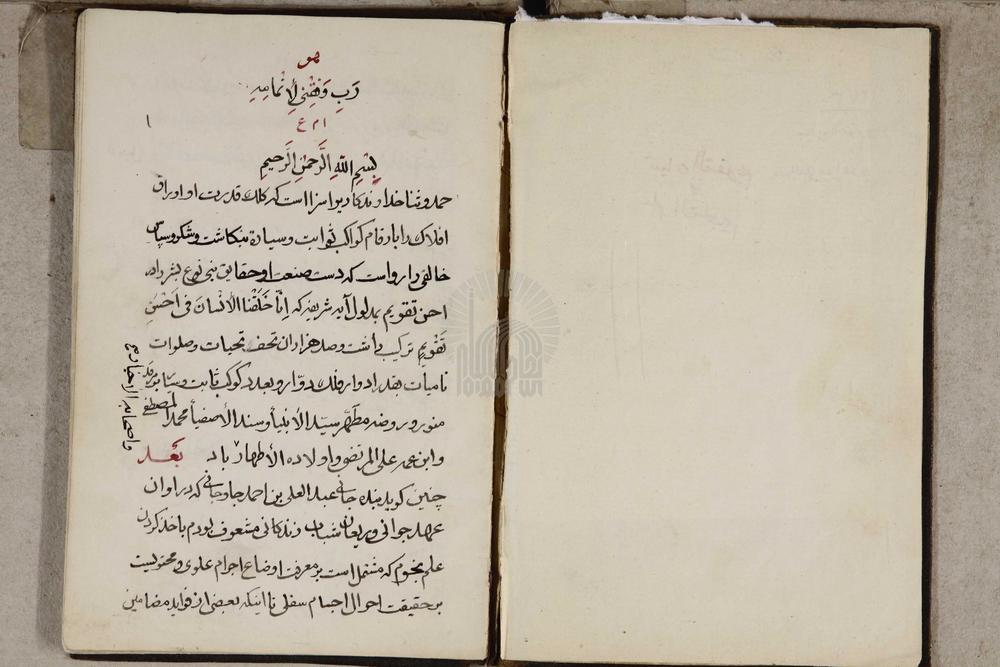 هو
رَبِ وَفِقْنِي لِاِتْمامِهِ
ا م ع
۱
بِسْمِ اللهِ الرَّحْمنِ الرَّحيمِ
حمد و ثنا خداوندکاریرا سزا است که کلک قدرت او اوراق
افلاک را بارقام کواکب ثوابت و سیاره بنکاشت و شکر و سپاس
خالقی را رواست که دست صنعت او حقایق نوع بشر را در
احسن تقویم بمدلول آیه شریفه که اِنّا خَلَقْنَا الْاِنْسانَ فی اَحْسَنِ
تَقْویمٍ ترکیب داشت و صد هزاران تحف تحیات و صلوات
نامیات بقدر ادوار فلک دوّار و بعدد کوکب ثابت و سیّار بر مرقد
منور و روضه مطهّر سیّد الانبیاء و سند الاصفیاء محمد المصطفی
وابن عمه علی المرتضی و اولاده الاطهار باد بَعْد
واصحابه الاخیار
چنین کوید بنده جانی عبد العلی بن احمد که در اوان
عهد جوانی و ریعان شباب زندکانی مشعوف بودم باخذ کردن
علم نجوم که مشتمل است بر معرفت اوضاع اجرام علوی و محتویست
بر حقیقت احوال اجسام سفلی تا اینکه بعضی از فواید مضامین